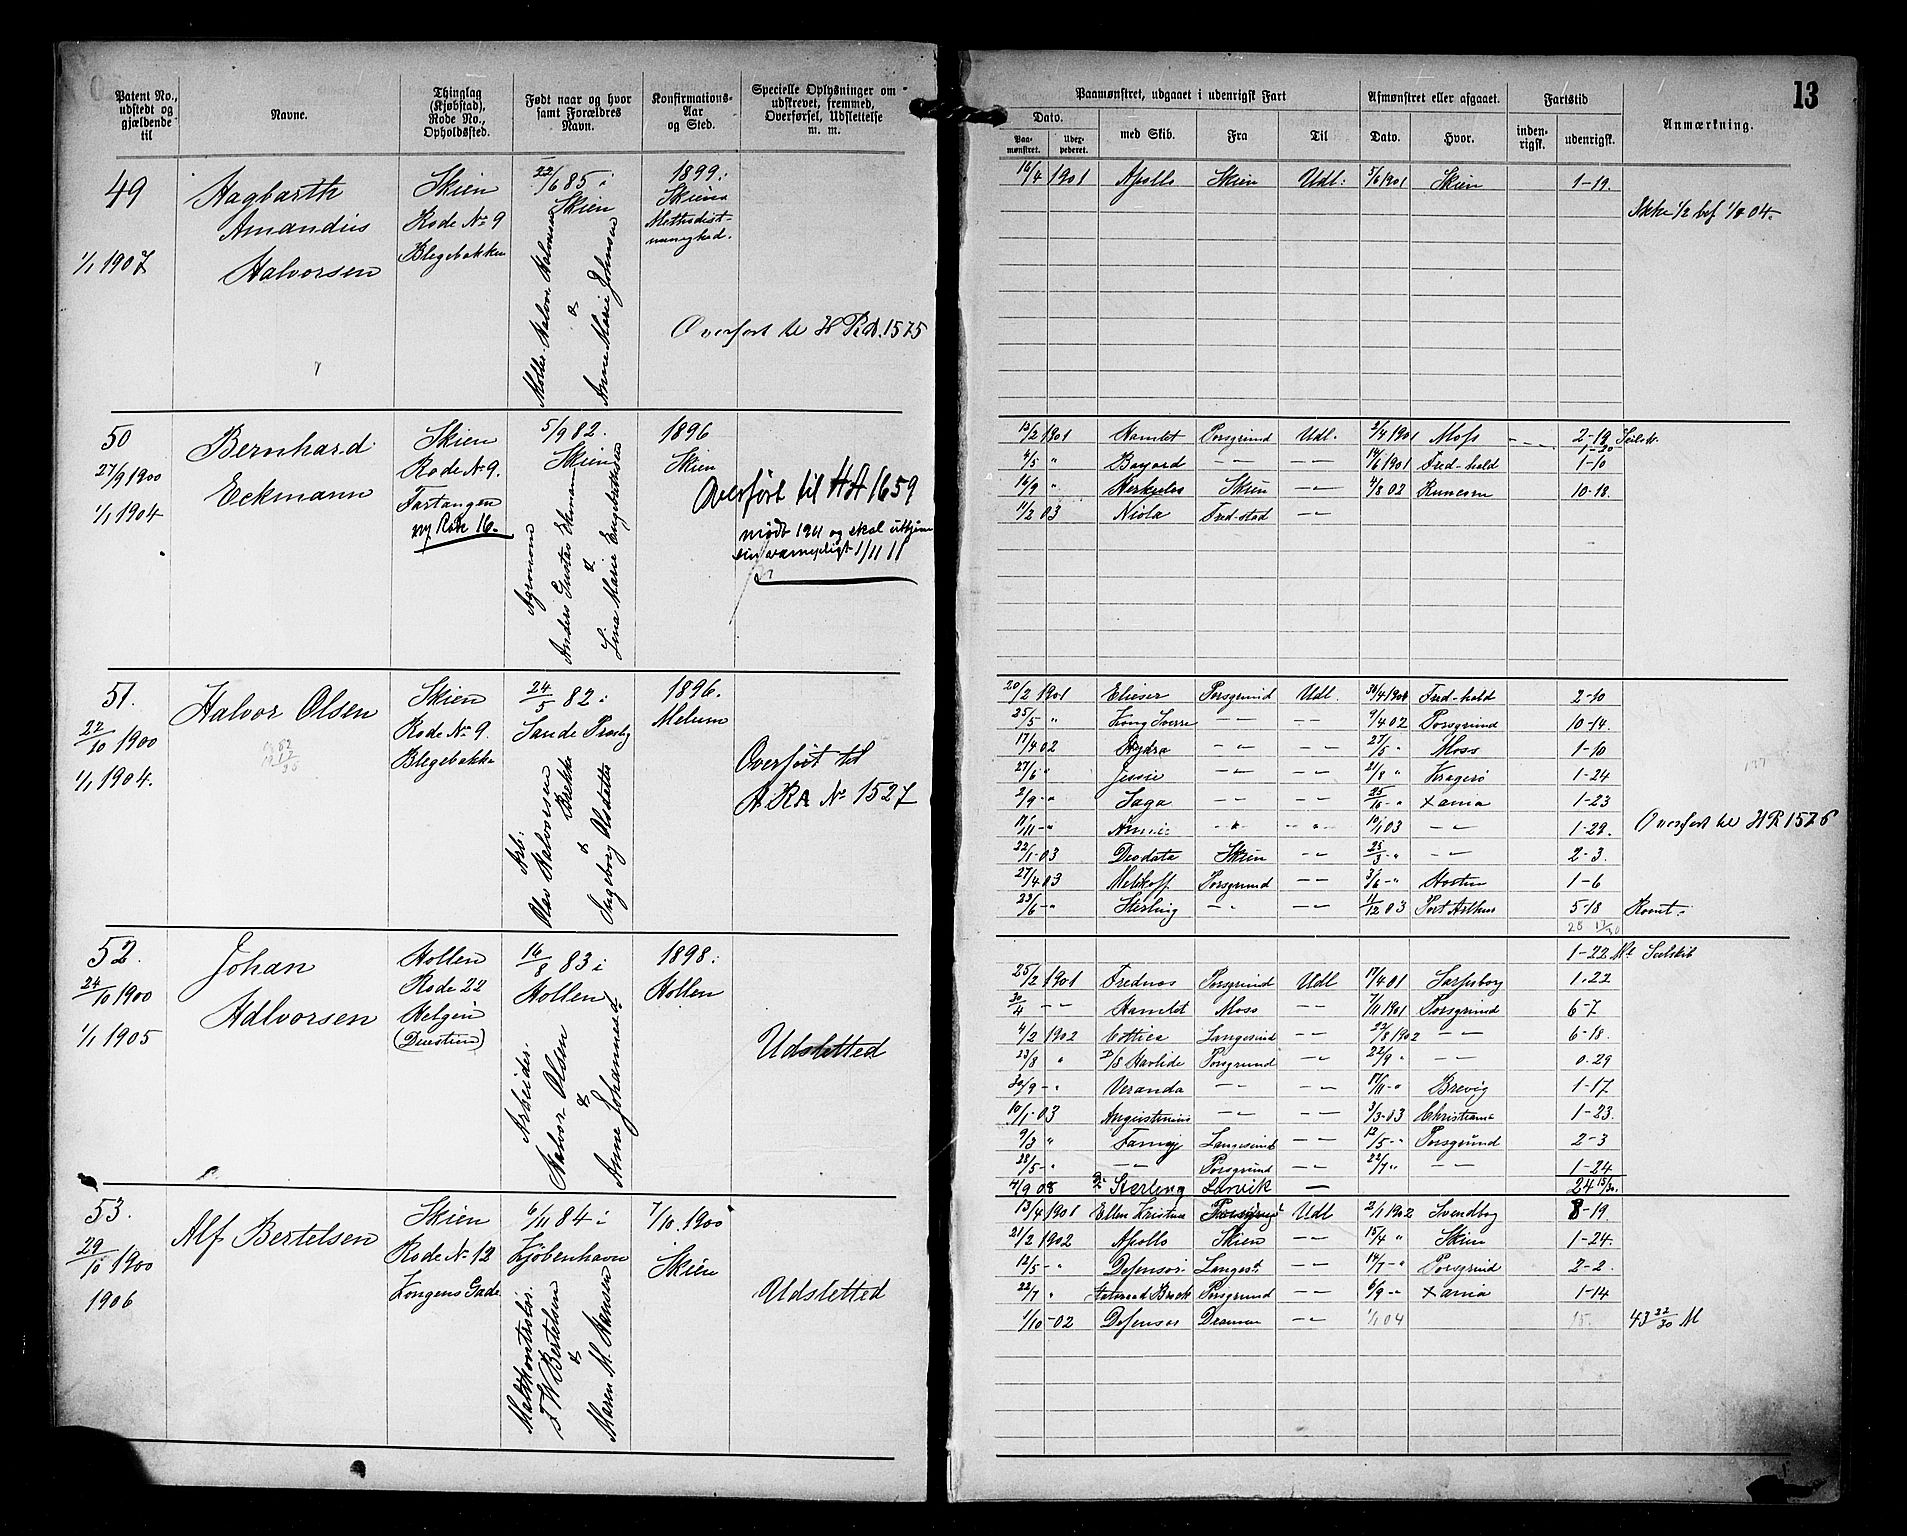 13
Patent No., udstedt og gjældende til
Navne.
Thinglag (Kjøbstad), Rode No., Opholdssted.
Født naar og hvor samt Forældres Navn.
Konfirmations-Aar og Sted.
Specielle Oplysninger om udskrevet, fremmed, Overførsel, Udslettelse m. m.
Paamønstret, udgaaet i udenrigsk Fart
Afmønstret eller afgaaet.
Fartstid
Anmærkning.
Dato.
Paa-mønstret.
med Skib.
Fra
Til
Dato.
Hvor.
inden-rigsk.
udenrigsk.
49
1/1 1907
Hagbarth
Amandius
Halvorsen
Skien
Rode No 9
Blegebakken
22/6 85 i
Skien
Halvor Halvorsen
&
Anne Marie Johnsen
1899.
Skiens
Methodist-
menighed.
Overført til H R A. 1575
16/4 1901 Apollo Skien Udl: 5/6 1901 Skien 1-19.
Ikke 1/2 bef 1/8 04.
50
27/9 1900
1/1 1904
Bernhard
Eckmann
Skien
Rode No 9.
Ny Rode 16.
5/9 82.
Skien
Agronom
Anders Gustav Ekmann
&
Lina Marie Engebretsdatter
1896
Skien
Overført til HA 1659
mødt 1911 og skal utkjene
sin værnepligt 1/11 11
12/2 1901 Hamlet Porsgrund Udl. 2/4 1901 Moss 2-19 Seilsk.
1-20
4/5 " Bayard — — 14/6 1901 Fred-hald 1-10
16/9 " Herkules Skien — 4/8 02 10-18.
11/2 03 Niola Fred-stad —
51.
22/10 1900
1/1 1904.
Halvor Olsen
Skien
Rode No 9.
Blegebakke
24/5 82 i
Sande Præstg
Arb.
Olav Halvorsen
Brekke
&
Ingeborg Olsdatter
1896.
Melum
Overført til
A.R.A No 1527
20/2 1901 Elieser Porsgrund Udl. 30/4 1901 Fred-hald 2-10
25/5 " Kong Sverre — — 9/4 02 Porsgrund 10-14.
17/4 02 Hydra — — 27/5 " Moss 1-10
27/6 " Jessie — — 21/8 " Kragerø 1-24
2/9 - " Saga — — 25/10 - " Xania 1-23
17/11 - " — — 10/1 03 — 1-29.
22/1-03 Deodata Skien — 25/3 - " — 2-3.
27/4 03 Melikoff Porsgrund — 3/6 - " 1-6
23/6 - " Sterling — — 11/12 03 Port Arthur 5-18
Overført til H R 1576
52.
24/10 1900
1/1 1905
Johan
Adlvorsen
Hollen
Rode 22
Helgen
16/8 83 i
Hollen
Arbeider.
Halvor Olsen
&
Anne Johannesdt
1898.
Hollen
Udsletted
1-22
25/2 1901 Frednæs Porsgrund Udl 17/4 01 Sarpsborg 1.22
30/4 — Hamlet Moss — 7/11 1901 Porsgrund 6-7
4/2 1902 Cottica Langesund 22/8 1902 — 6-18.
23/8 " D/S Havlide Porsgrund — 22/9 " — 0-29
30/9 - " Veranda — — 17/11 - " Brevig 1-17
10/1-03 Augustinius — — 3/3-03 Christiania 1-23.
9/3 " Langesund — 12/5 - " Porsgrund 2-3
28/5 - " — Porsgrund — 22/7 " — 1-24
4/9 08 Sterling Larvik — 24 15/30.
53.
29/10 1900
1906
Alf Bertelsen
Skien
Rode No 12
Kongens Gade
6/11 84 i
Kjøbenhavn
Maltkontrolør.
F W Bertelsen
&
Maren M. Hansen
7/10. 1900
Skien
Udsletted
13/4 1901 Ellen Kristine Udl 2/1 1902 Svendborg 8-19
21/2 1902 Apollo Skien — 15/4 " Skien 1-24.
12/5 - " Defensor Langes. — 14/7 - " Porsgrund 2-2.
22/7 " Statsraad Brock Porsgrund — 6/9 - " Xania 1-14
1/10-02 Defensor Dramen — 1/1 04
43 22/30 M